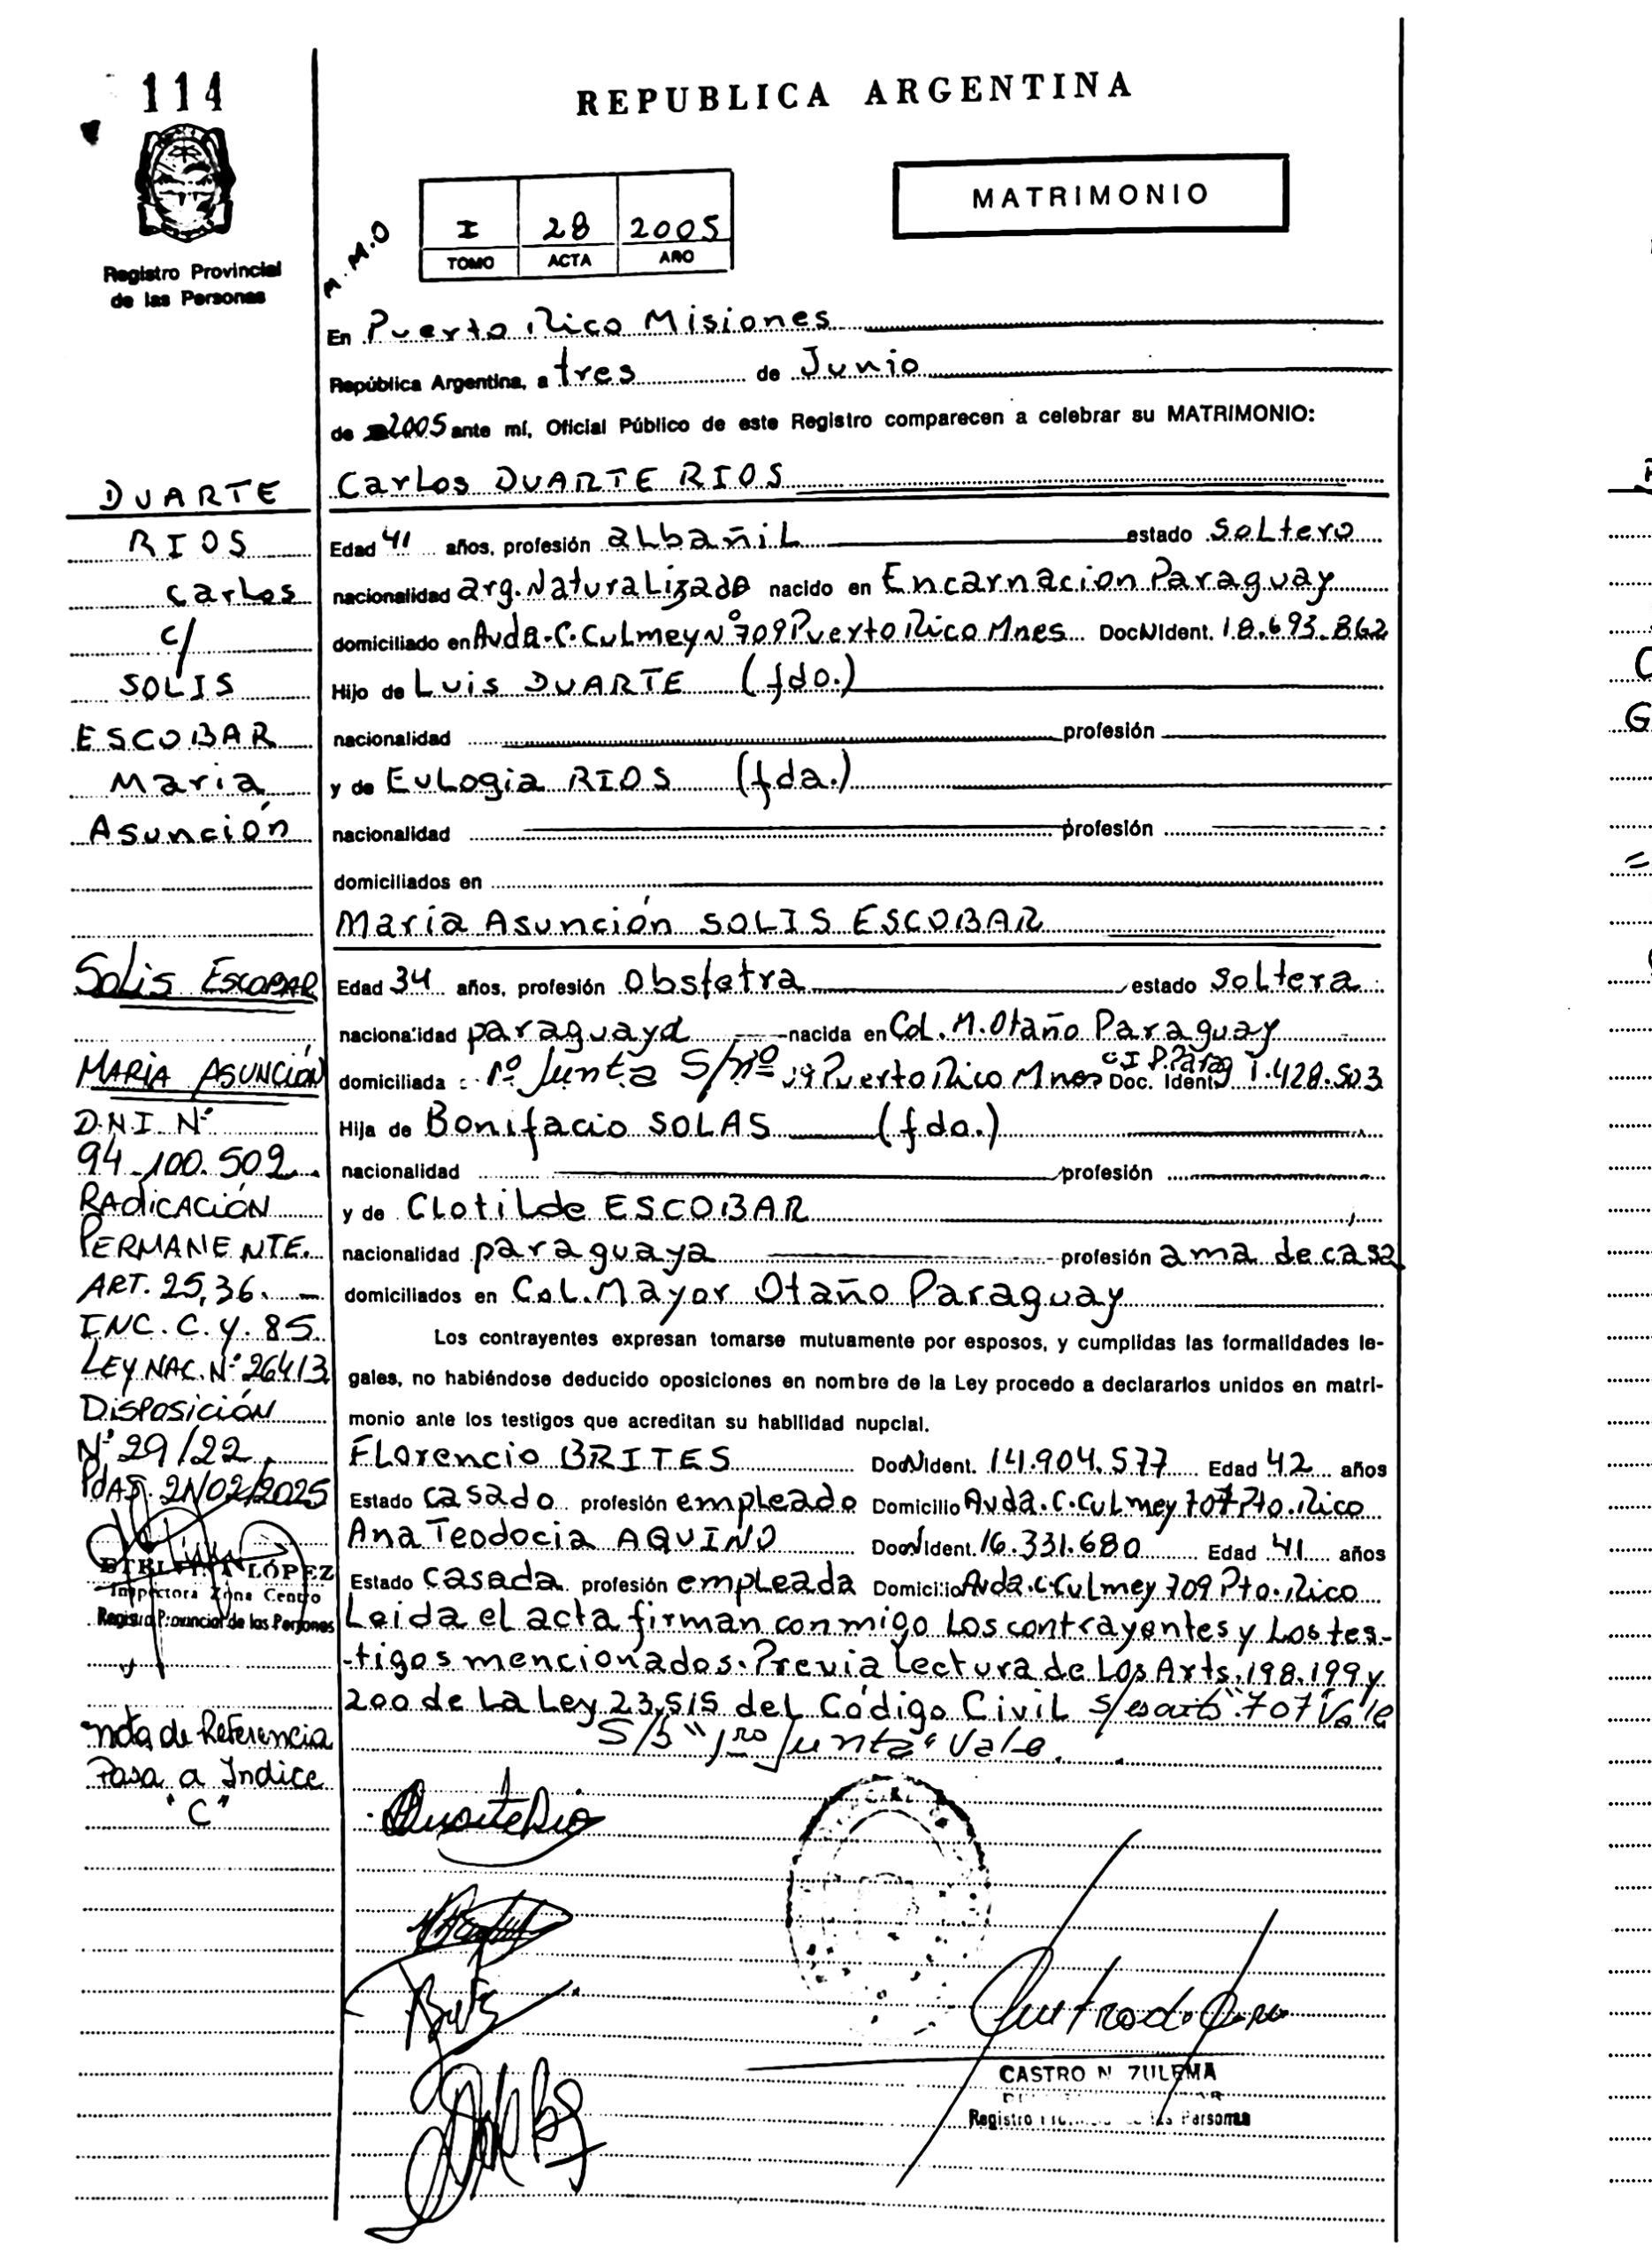 114
REPUBLICA ARGENTINA
MATRIMONIO
Registro Provincial
de las Personas
M.M.O
I 28 2005
TOMO ACTA AÑO
En Puerto Rico Misiones
República Argentina, a tres de Junio
de 2005 ante mí, Oficial Público de este Registro comparecen a celebrar su MATRIMONIO:
Carlos DUARTE RIOS
Edad 41 años, profesión albañil estado soltero
nacionalidad arg. Naturalizado nacido en Encarnacion Paraguay
domiciliado en Avda. C. Culmey Nº 709 Puerto Rico Mnes Doc N Ident. 18.693.862
Hijo de Luis DUARTE (fdo.)
nacionalidad profesión
y de Eulogia RIOS (fda.)
nacionalidad profesión
domiciliados en
María Asunción SOLIS ESCOBAR
Edad 34 años, profesión Obstetra estado soltera
nacionalidad paraguaya nacida en Col. M. Otaño Paraguay
domiciliada : 1º Junta S/nº Puerto Rico Mnes C I P. Parag Doc. Ident 1.428.503
Hija de Bonifacio SOLAS (fdo.)
nacionalidad profesión
y de Clotilde ESCOBAR
nacionalidad paraguaya profesión ama de casa
domiciliados en Col. Mayor Otaño Paraguay
Los contrayentes expresan tomarse mutuamente por esposos, y cumplidas las formalidades le-
gales, no habiéndose deducido oposiciones en nombre de la Ley procedo a declararlos unidos en matri-
monio ante los testigos que acreditan su habilidad nupcial.
Florencio BRITES Doc N Ident. 14.904.577 Edad 42 años
Estado casado profesión empleado Domicilio Avda. C. Culmey 707 Pto. Rico
Ana Teodocia AQUINO Doc N Ident. 16.331.680 Edad 41 años
Estado casada profesión empleada Domicilio Avda. C. Culmey 709 Pto. Rico
Leida el acta firman conmigo los contrayentes y los tes-
-tigos mencionados. Previa lectura de los Arts. 198. 199 y
200 de la Ley 23,515 del Código Civil 707 Vale
S/b "1ro Junta" Vale.
DUARTE
RIOS
Carlos
c/
SOLIS
ESCOBAR
Maria
Asunción
Solis Escobar
MARIA ASUNCIÓN
D.N.I Nº
94.100.502
RADICACIÓN
PERMANENTE.
ART. 25,36.
INC. C. Y. 85
LEY NAC. Nº 26413
DISPOSICIÓN
Nº 29/22
PdAS. 21/02/2025
LÓPEZ
Inspectora Zona Centro
Registro Provincial de las Personas
nota de Referencia
Pasa a Indice
"C"
CASTRO N ZULEMA
Registro de las Personas